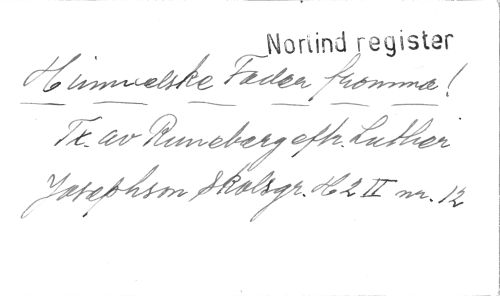 Norlind register
Himmelske Fader fromme!
Tx. av Runeberg eftr. Luther
Josephson Skolsgr. H2 II nr. 12